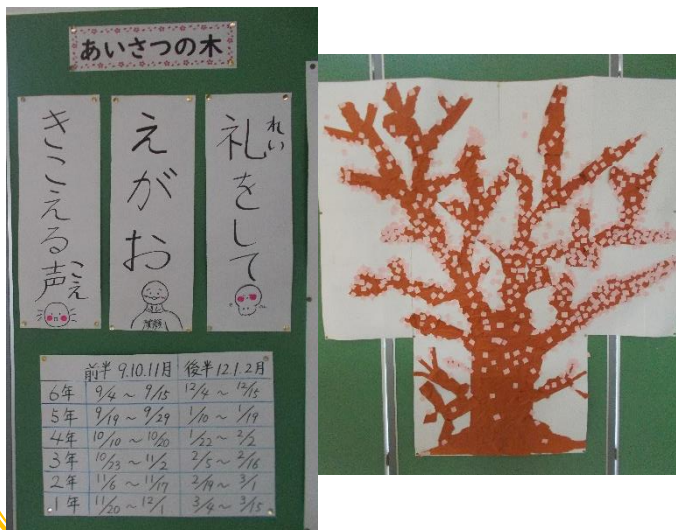 あいさつの木
礼をして
れい
えがお
きこえる声
こえ
前半 9.10.11月 後半 12.1.2月
6年 9/4 ~ 9/15 12/4 ~ 12/15
5年 9/19 ~ 9/29 1/10 ~ 1/19
4年 10/10 ~ 10/20 1/22 ~ 2/2
3年 10/23 ~ 11/2 2/5 ~ 2/16
2年 11/6 ~ 11/17 2/19 ~ 3/1
1年 11/20 ~ 12/1 3/4 ~ 3/15